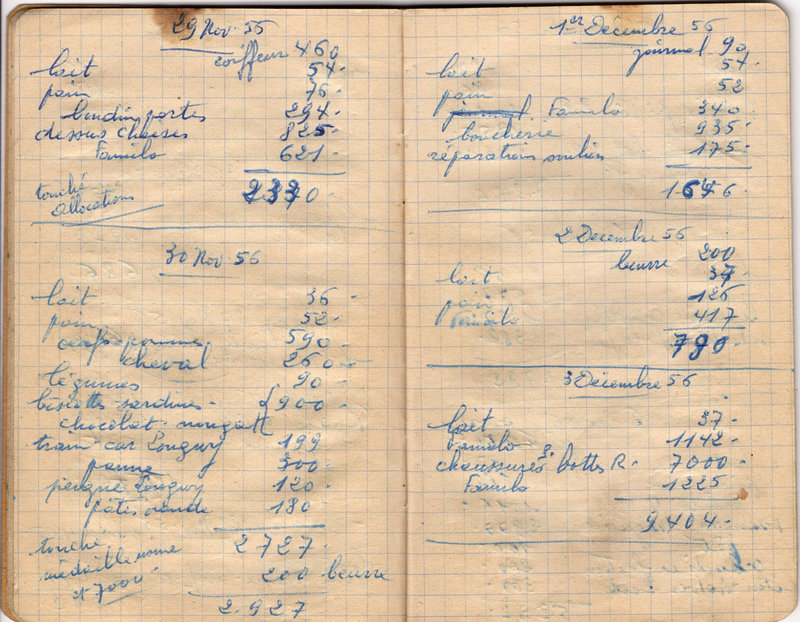 29 Nov 56
coiffeur 460
lait 54
pain 76
boudin portes 294
dessus chaises 825
Familo 621
touché 2330
allocations
30 Nov 56
lait 36
pain 52
oeufs pommes 590
cheval 260
légumes 90
biscottes sardines 900
chocolat nougat
train car Longwy 199
panne 300
peigne Longwy 120
pâtes viande 180
touché 2727
médaille usine 200 beurre
et 7000
2.927
1er Décembre 56
journal 90
lait 54
pain 52
journal Familo 340
boucherie 935
réparations souliers 175
1646
2 Décembre 56
beurre 200
lait 37
pain 126
Familo 417
780
3 Décembre 56
lait 37
Familo 1142
chaussures bottes R. 7000
Familo 1225
9.404